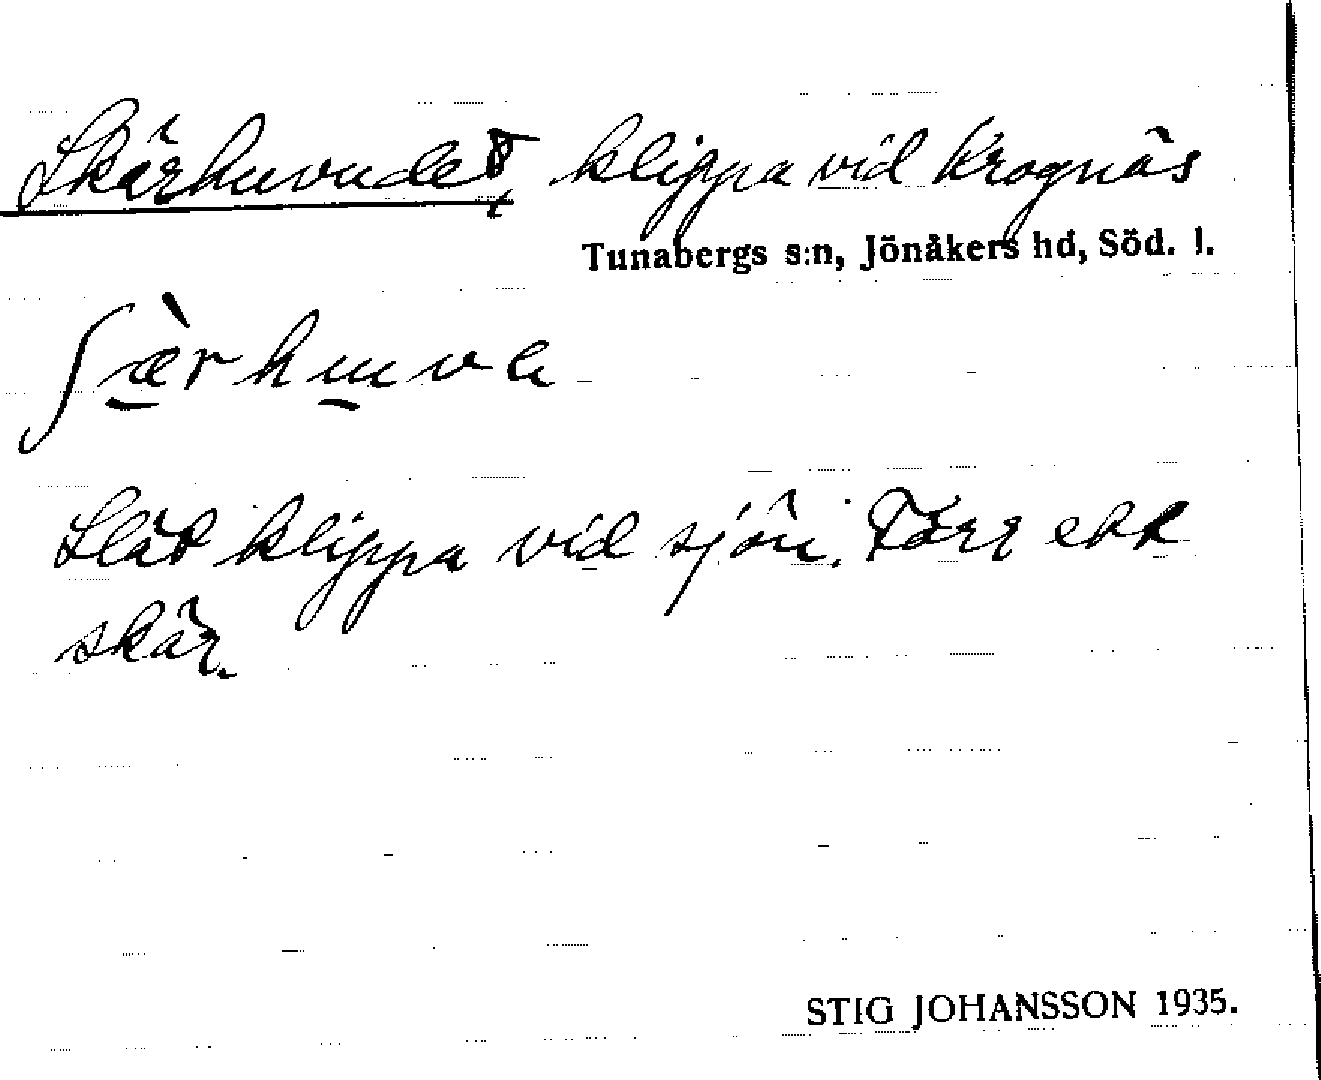 Skärhuvudet, klippa vid Krognäs
Tunabergs s:n, Jönåkers hd, Söd. l.
ʃæ̀rhuva
Slät klippa vid sjön. Förr ett
skär.
STIG JOHANSSON 1935.